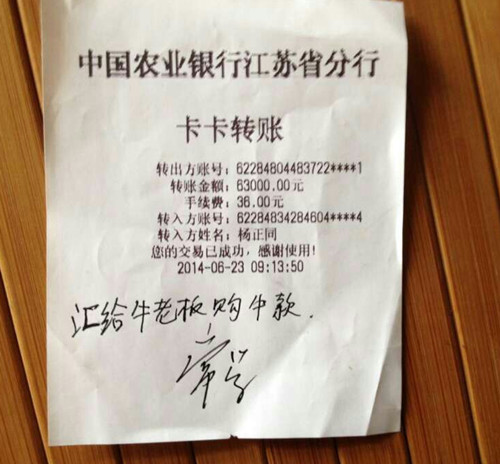 中国农业银行江苏省分行
卡卡转账
转出方账号：62284804483722****1
转账金额：63000.00元
手续费：36.00元
转入方账号：62284834284604****4
转入方姓名：杨正同
您的交易已成功，感谢使用！
2014-06-23 09:13:50
汇给牛老板购牛款.